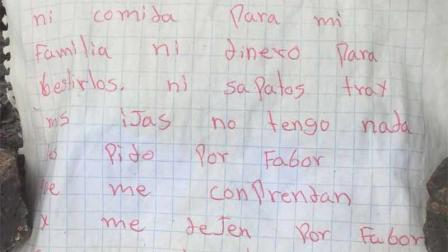 ni comida para mi
familia ni dinero para
bestirlos. ni sapatos tray
ms ijas no tengo nada
Pido Por Fabor
me conPrendan
me deJen Por Fabor